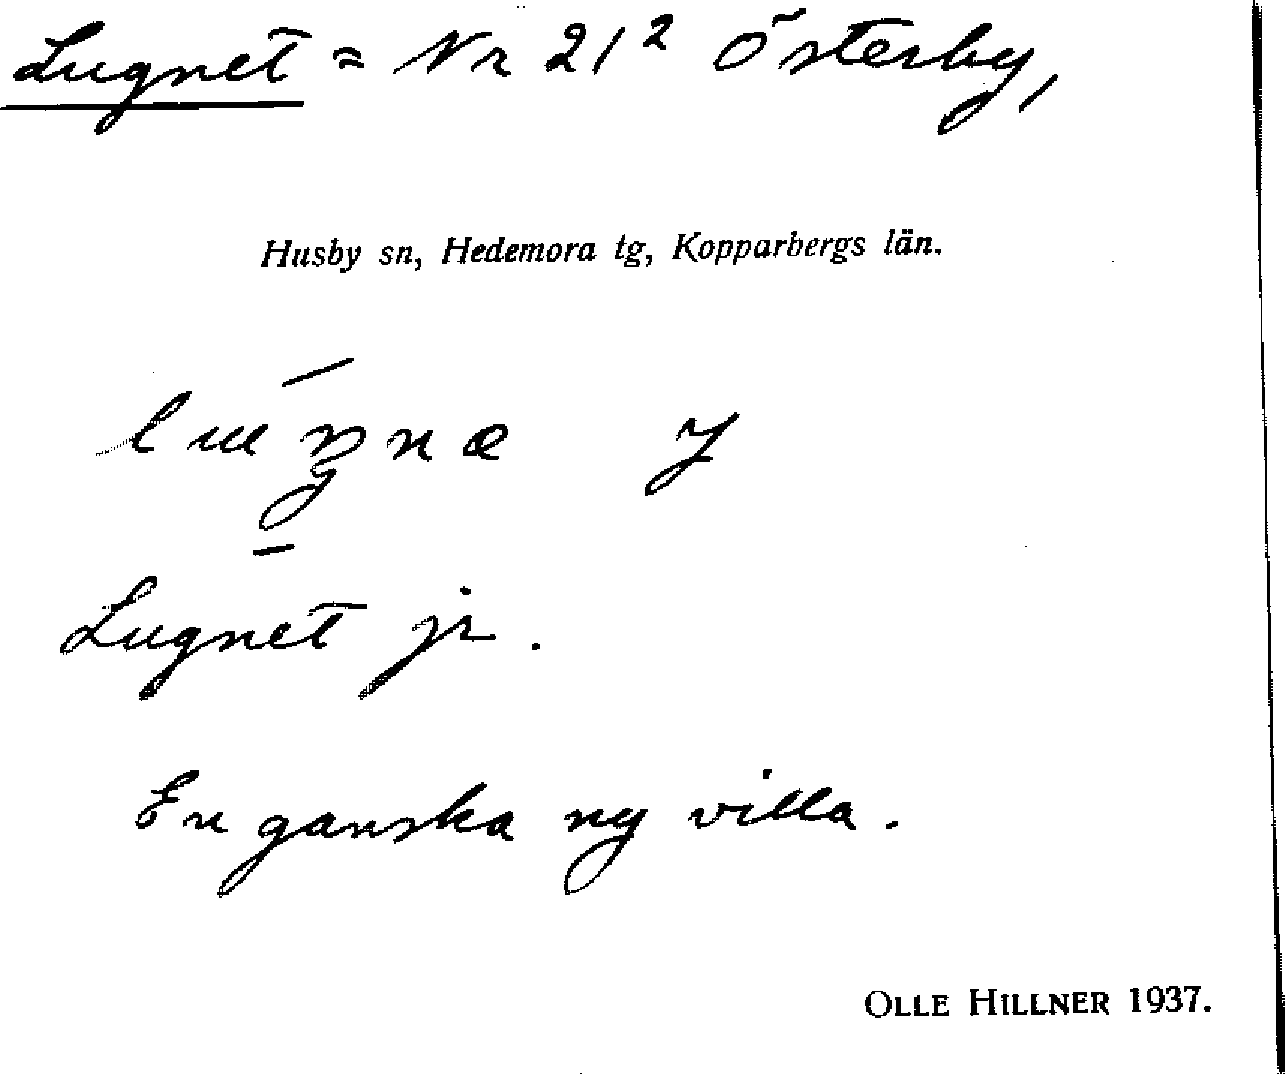 Lugnet = Nr 21² Österby,
Husby sn, Hedemora tg, Kopparbergs län.
Lugnet jr.
En ganska ny villa.
OLLE HILLNER 1937.